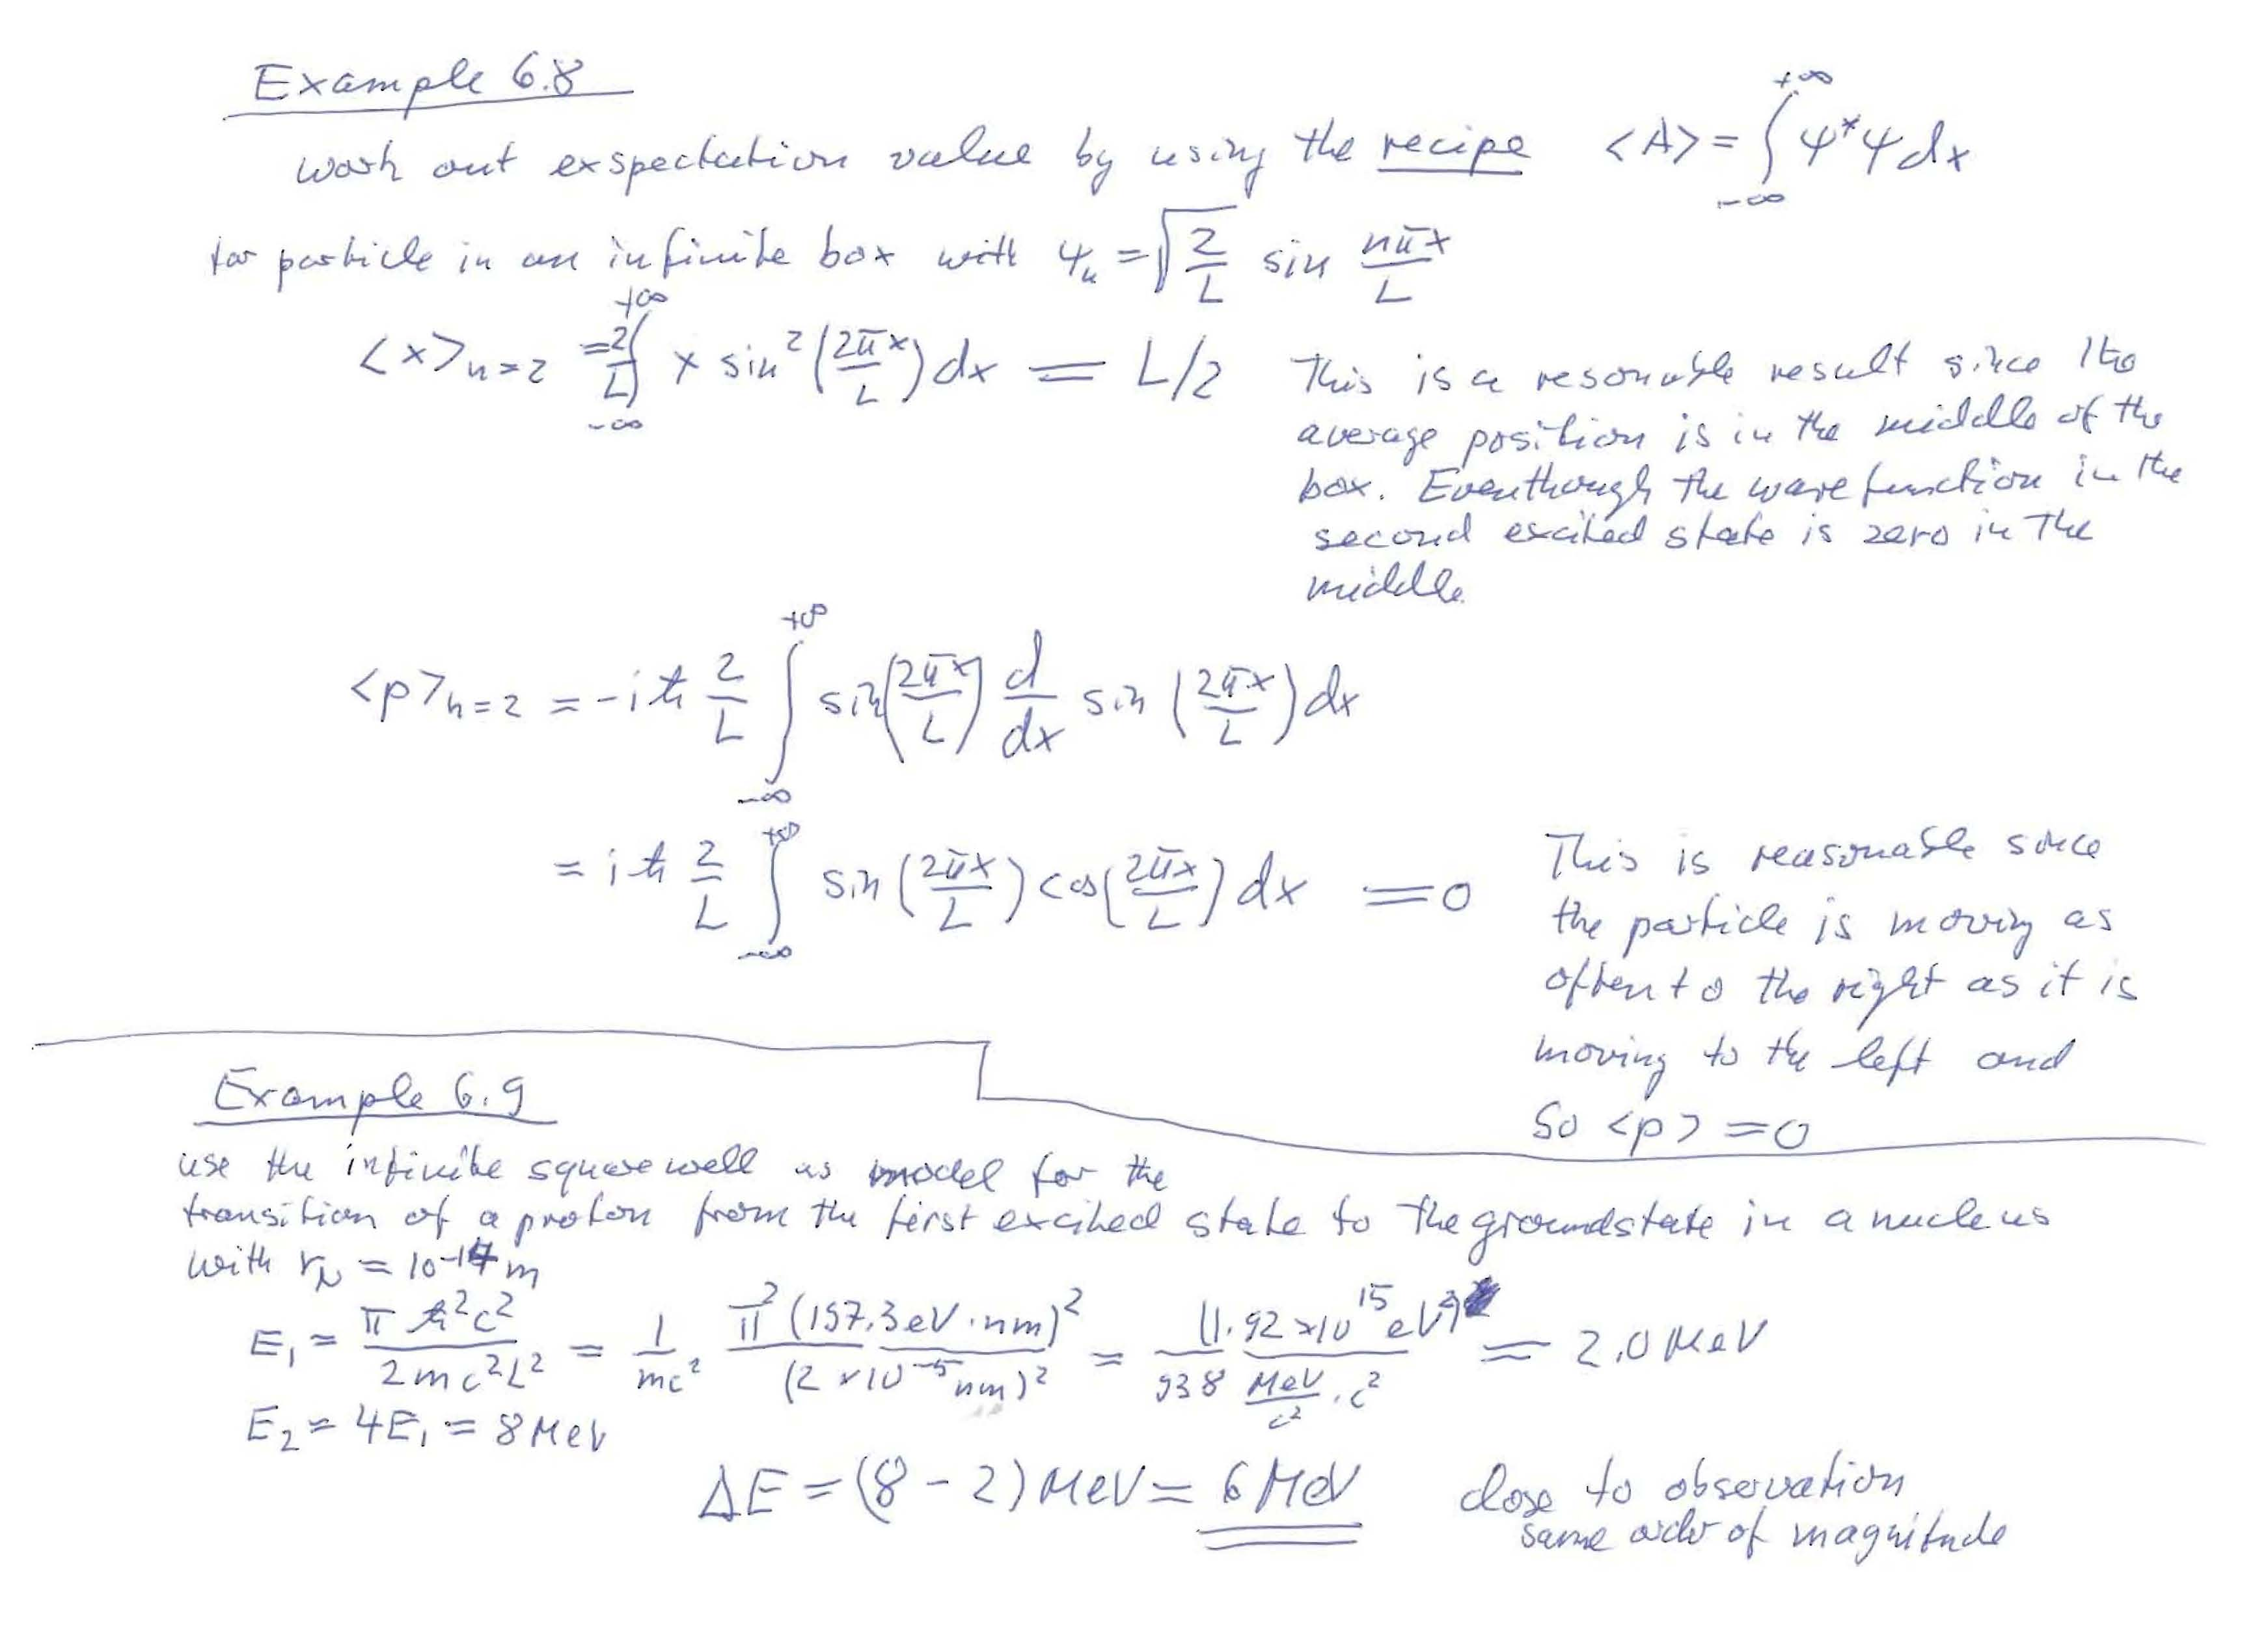 Example 6.8
work out exspectation value by using the recipe <A> = ∫_{-∞}^{+∞} ψ*ψ dx
for particle in an infinite box with ψₙ = √(2/L) sin nπx/L
<x>ₙ₌₂ = 2/L ∫_{-∞}^{+∞} x sin² (2πx/L) dx = L/2
This is a resonable result since the
average position is in the middle of the
box. Eventhough the wave function in the
second excited state is zero in the
middle.
<p>ₙ₌₂ = -iħ 2/L ∫_{-∞}^{+∞} sin(2πx/L) d/dx sin (2πx/L) dx
= iħ 2/L ∫_{-∞}^{+∞} sin (2πx/L) cos(2πx/L) dx = 0
This is reasonable since
the particle is moving as
often to the right as it is
moving to the left and
So <p> = 0
Example 6.9
use the infinite square well as model for the
transition of a proton from the first excited state to the groundstate in a nucleus
with r_N = 10⁻¹⁴ m
E₁ = π ħ²c² / 2mc²L² = 1/mc² π² (197.3 eV·nm)² / (2 × 10⁻⁵ nm)² = (1.92 × 10¹⁵ eV²) / 938 MeV/c² · c² = 2.0 MeV
E₂ = 4E₁ = 8 MeV
ΔE = (8 - 2) MeV = 6 MeV
close to observation
same order of magnitude